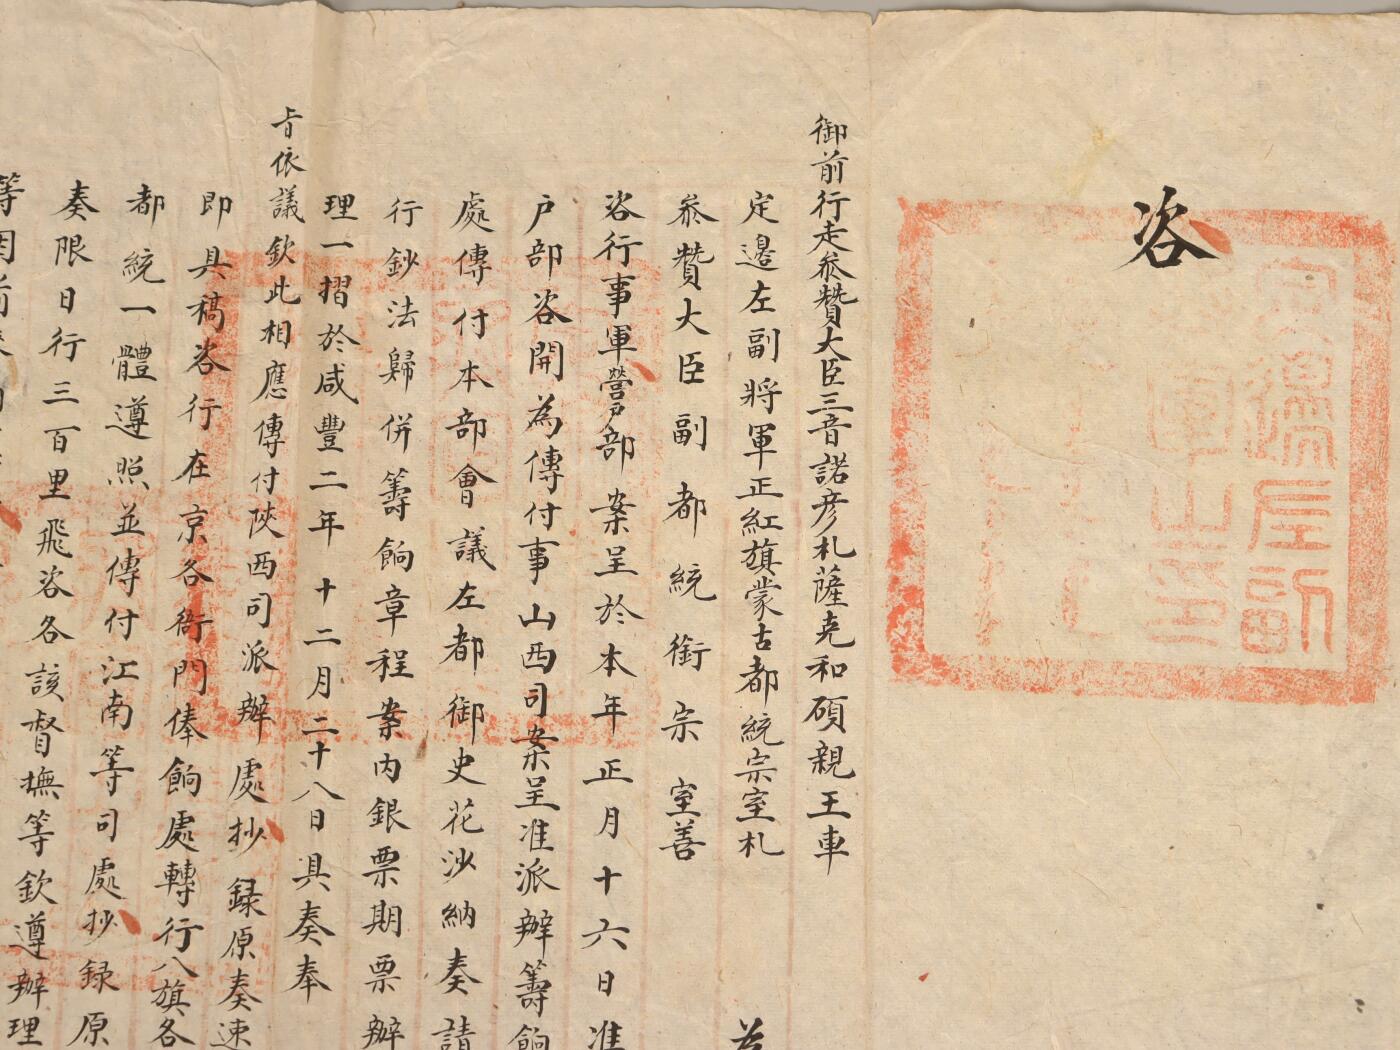 咨
御前行走叅贊大臣三音諾彦札薩克和碩親王車
定邊左副將軍正紅旗蒙古都統宗室札
叅贊大臣副都統銜宗室善
咨行事軍營户部案呈於本年正月十六日准
户部咨開為傳付事山西司案呈准派辦籌餉
處傳付本部會議左都御史花沙納奏請
行鈔法歸併籌餉章程案内銀票期票辦
理一摺於咸豐二年十二月二十八日具奏奉
旨依議欽此相應傳付陝西司派辦處抄録原奏速
即具稿咨行在京各衙門俸餉處轉行八旗各
都統一體遵照並傳付江南等司處抄録原
奏限日行三百里飛咨各該督撫等欽遵辦理
等因前